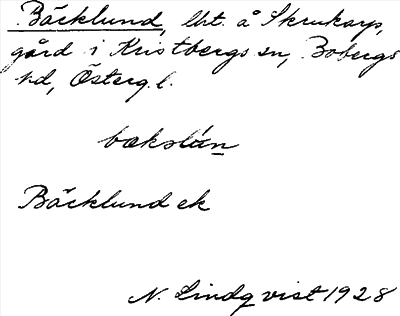 Bäcklund, lht. å Skrukarp,
gård i Kristbergs sn, Bobergs
hd, Österg. l.
bækslún
Bäcklund ek
N. Lindqvist 1928